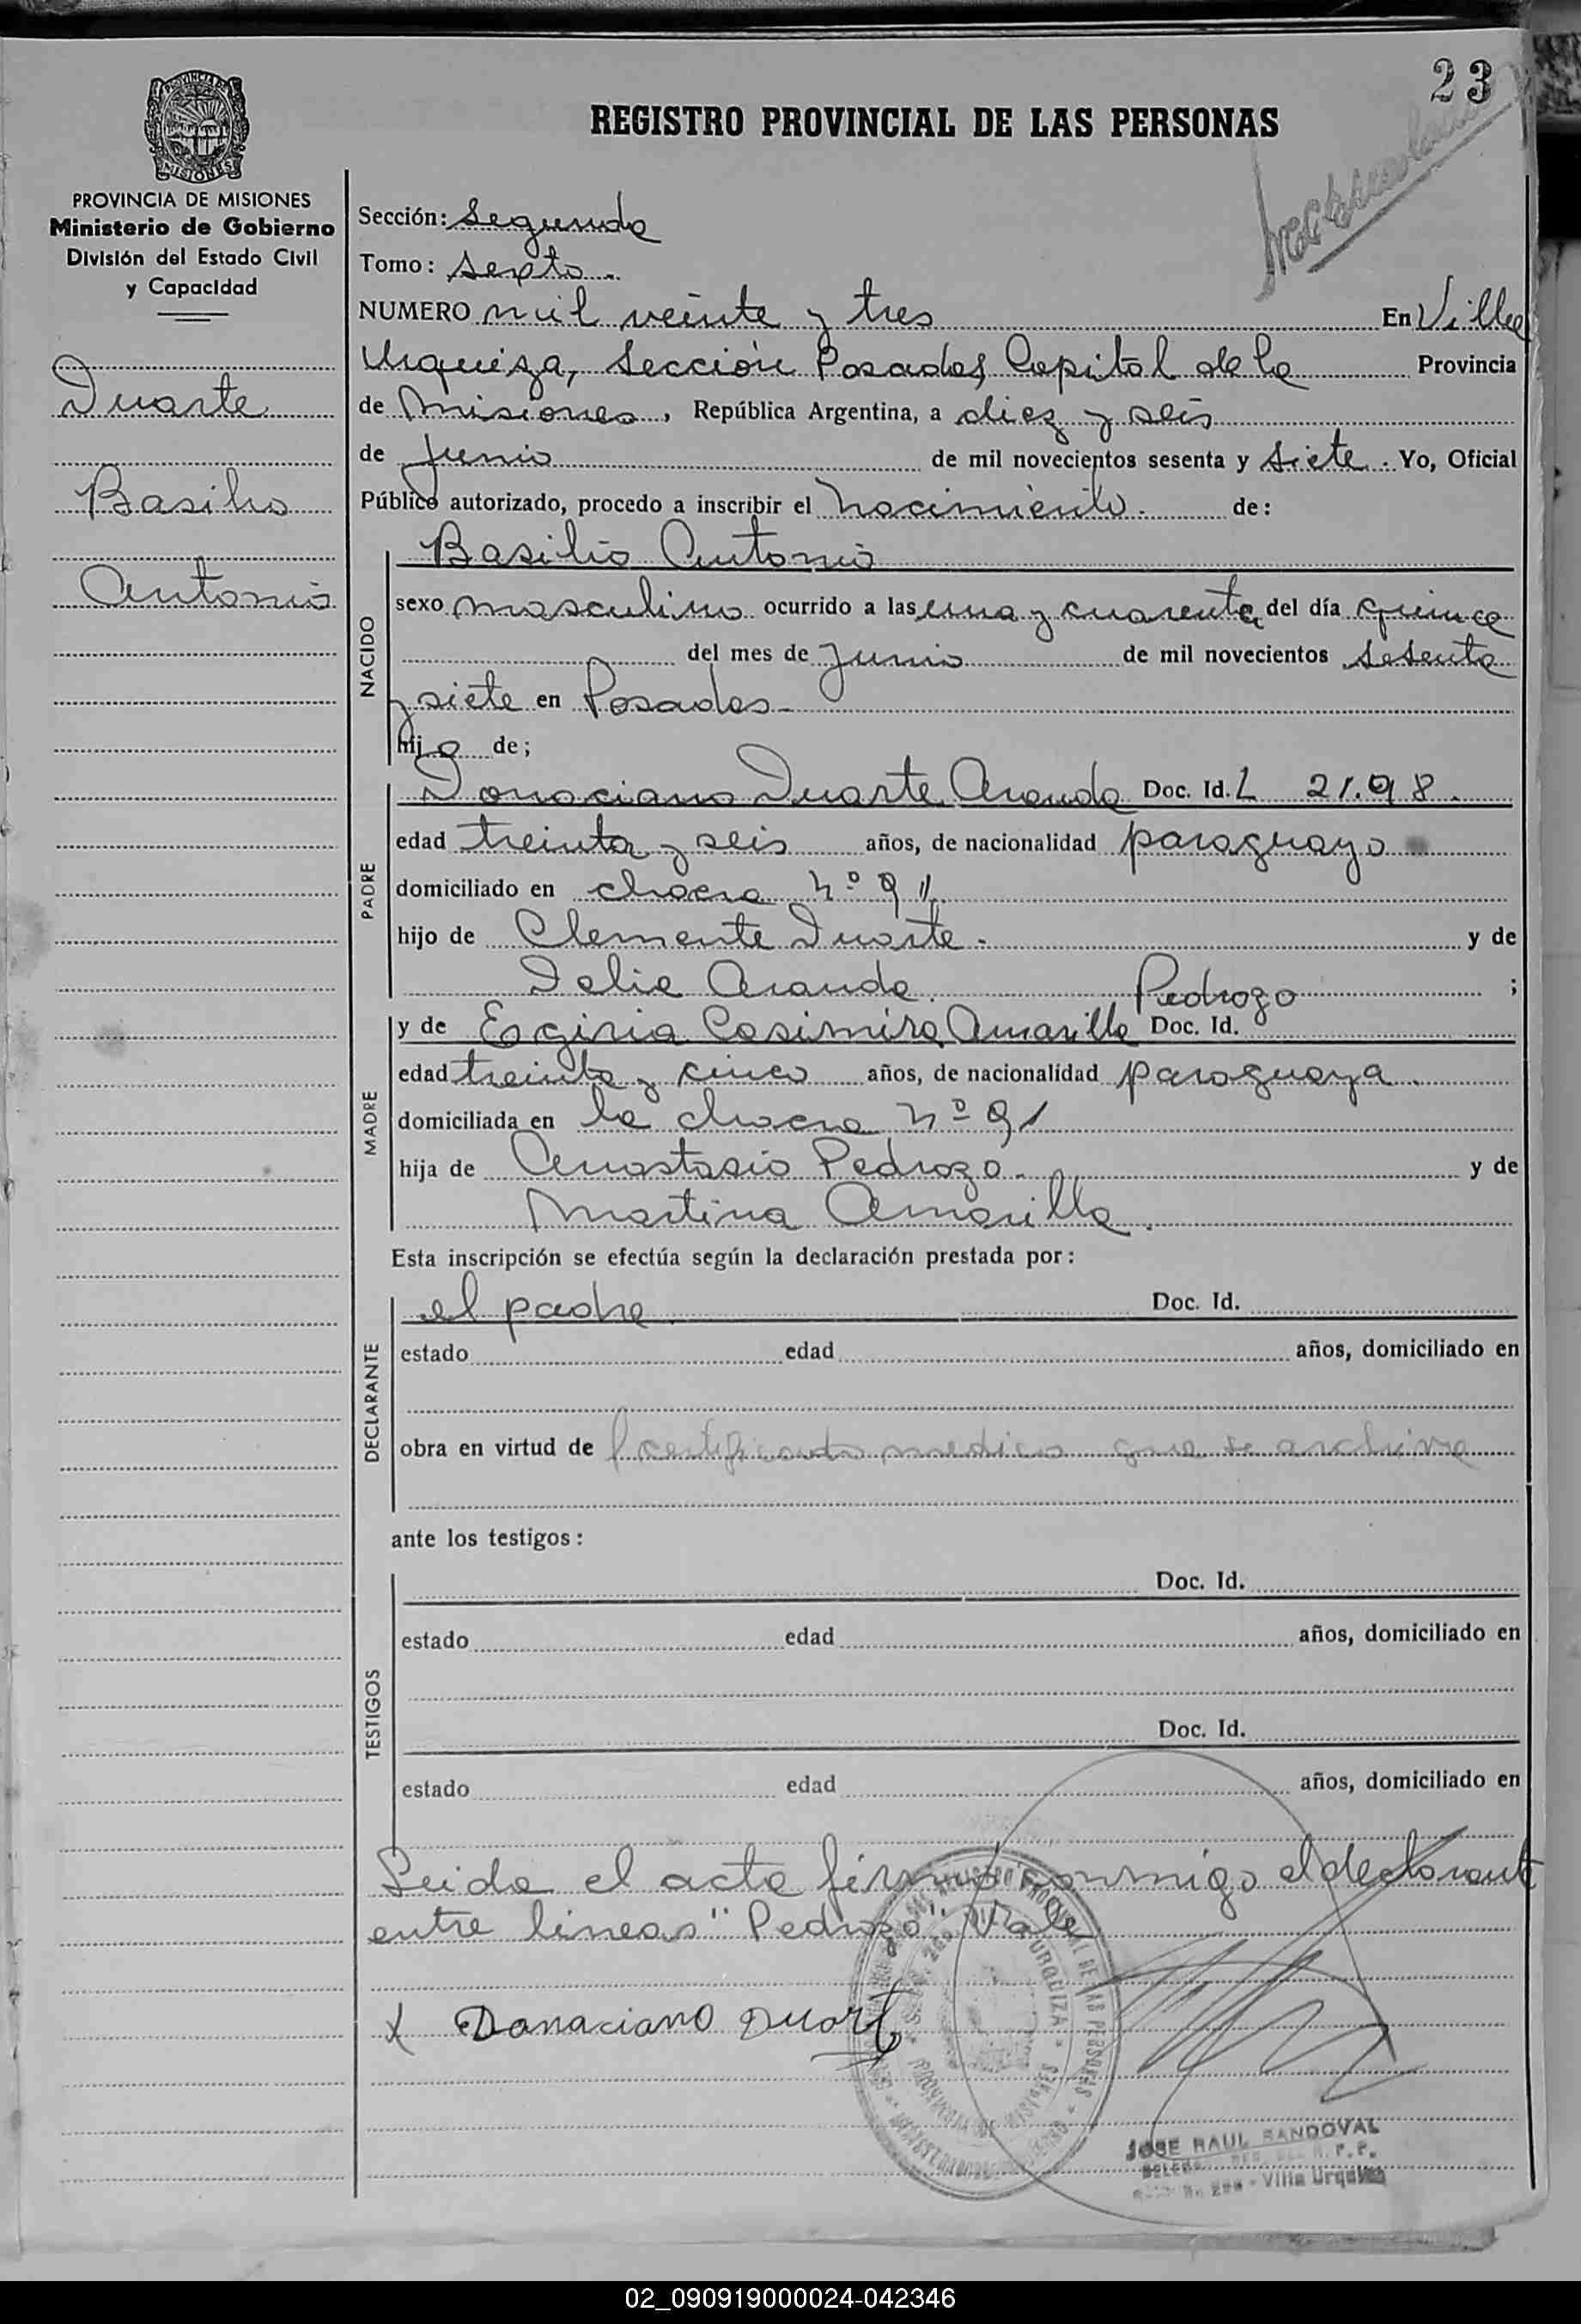 23
REGISTRO PROVINCIAL DE LAS PERSONAS
MISIONES
PROVINCIA DE MISIONES
Ministerio de Gobierno
División del Estado Civil
y Capacidad
Duarte
Basilio
Antonio
Sección: Segunda
Tomo: Sexto.
NUMERO mil veinte y tres En Villa
Urquiza, Sección Posadas, Capital de la Provincia
de Misiones, República Argentina, a diez y seis
de Junio de mil novecientos sesenta y siete. Yo, Oficial
Público autorizado, procedo a inscribir el nacimiento. de:
NACIDO
Basilio Antonio
sexo masculino ocurrido a las una y cuarenta del día quince
del mes de Junio de mil novecientos sesenta
y siete en Posadas-
hijo de;
PADRE
Donaciano Duarte Aranda Doc. Id. L 21.98.
edad treinta y seis años, de nacionalidad paraguayo
domiciliado en chacra nº 91
hijo de Clemente Duarte. y de
Delia Aranda. ;
Pedrozo
MADRE
y de Casimira Amarilla Doc. Id.
edad treinta y cinco años, de nacionalidad paraguaya.
domiciliada en la chacra nº 91
hija de Anastasio Pedrozo. y de
Martina Amarilla.
Esta inscripción se efectúa según la declaración prestada por:
DECLARANTE
el padre. Doc. Id.
estado edad años, domiciliado en
obra en virtud de certificado medico que se archiva
ante los testigos:
TESTIGOS
Doc. Id.
estado edad años, domiciliado en
Doc. Id.
estado edad años, domiciliado en
Leida el acta firmó conmigo el declarante
entre lineas "Pedrozo" Vale
x Donaciano Duarte
JOSE RAUL SANDOVAL
Villa Urquiza
02_090919000024-042346